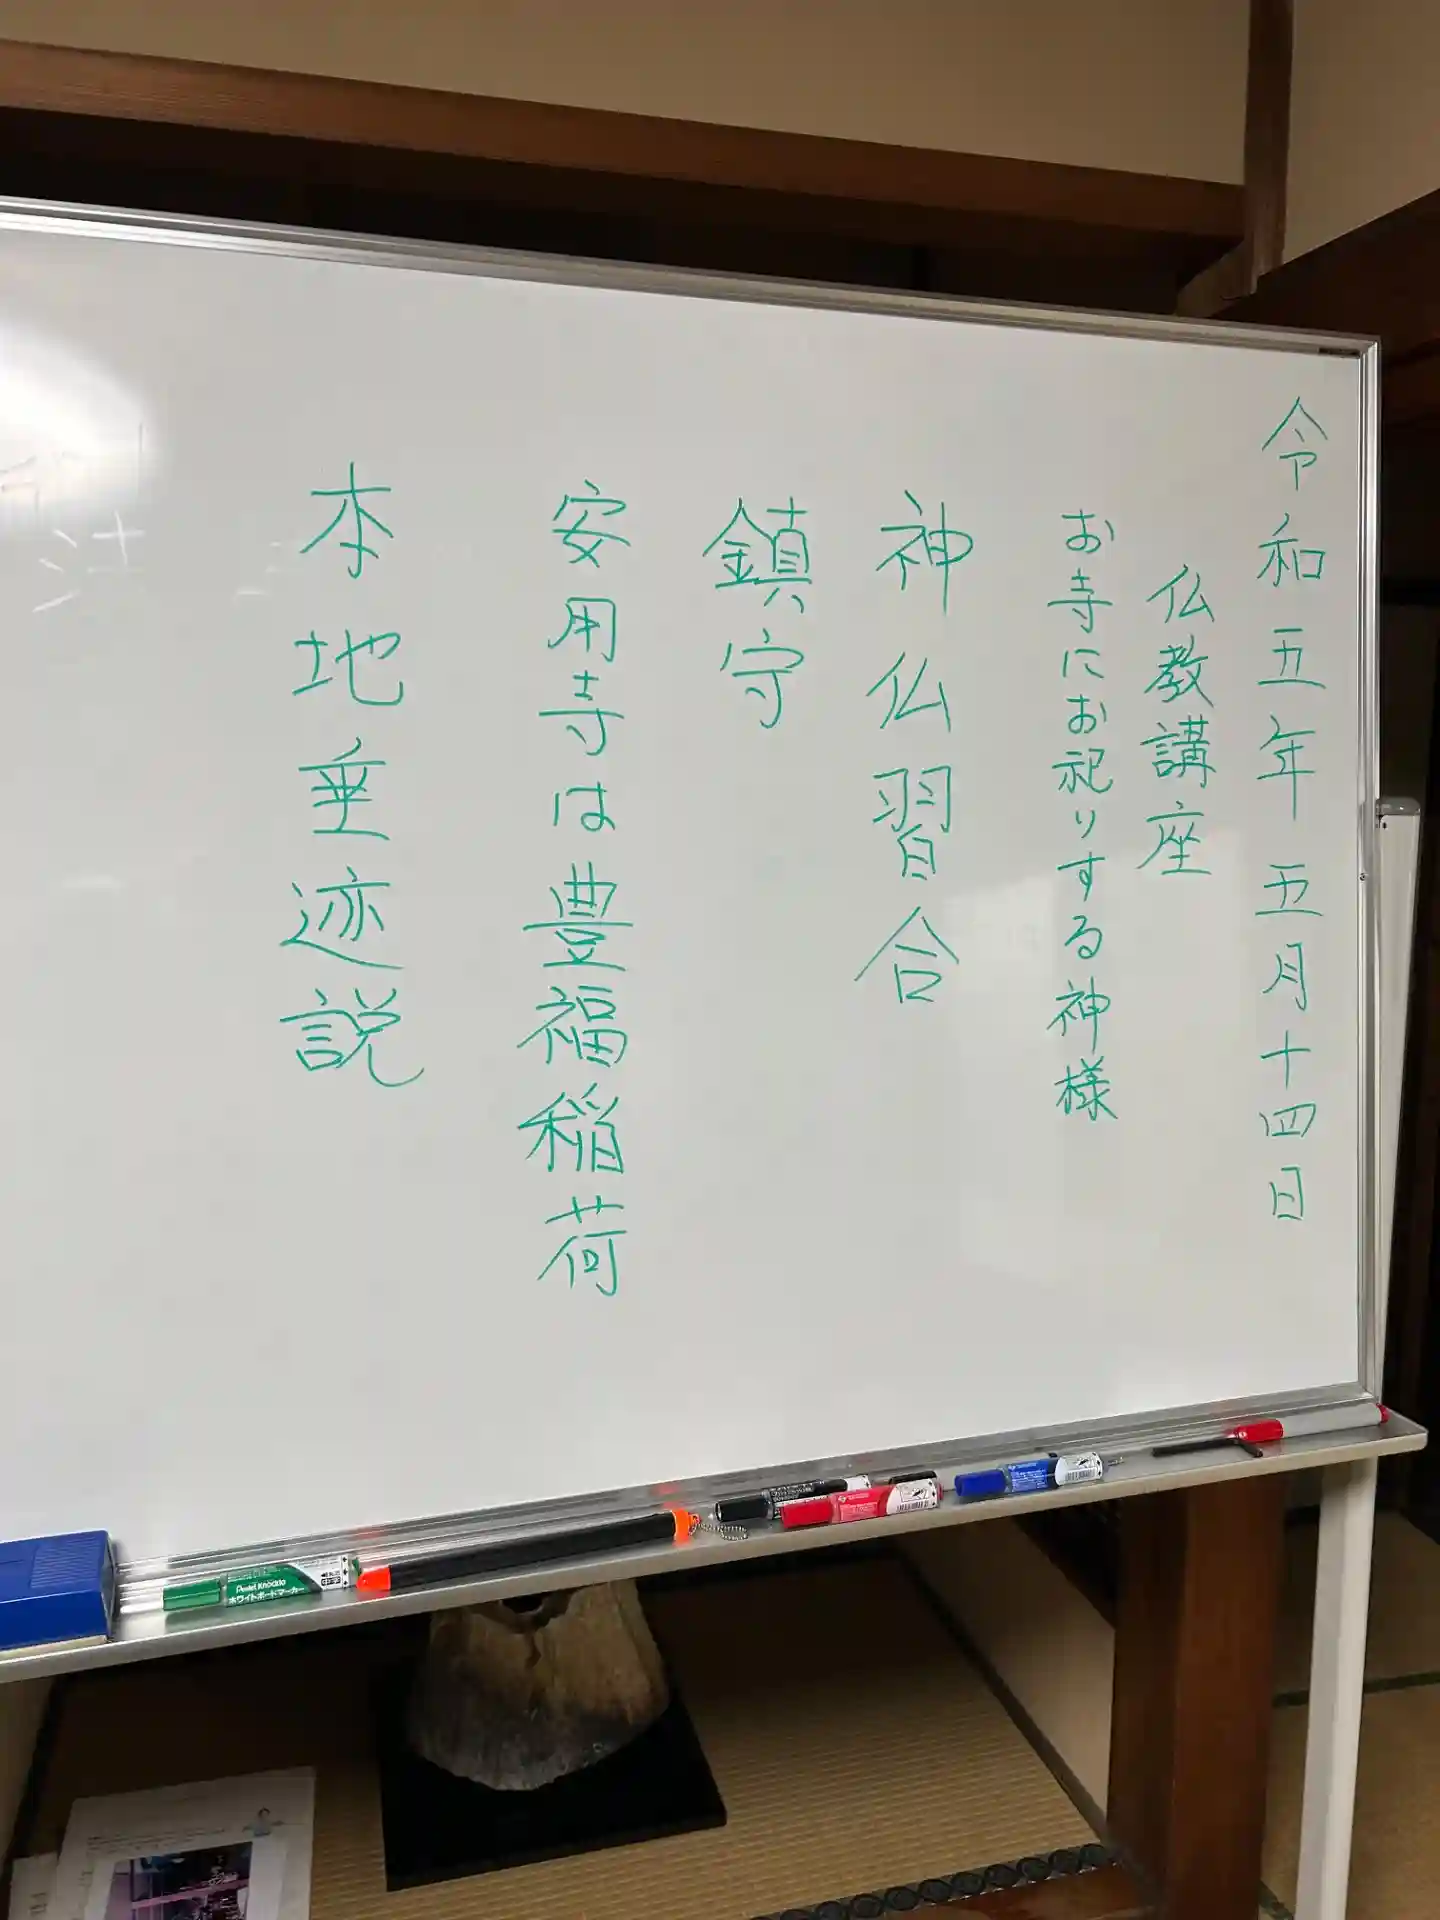 令和五年 五月十四日
仏教講座
お寺にお祀りする神様
神仏習合
鎮守
安用寺は豊福稲荷
本地垂迹説
Pentel Knockle
ホワイトボードマーカー